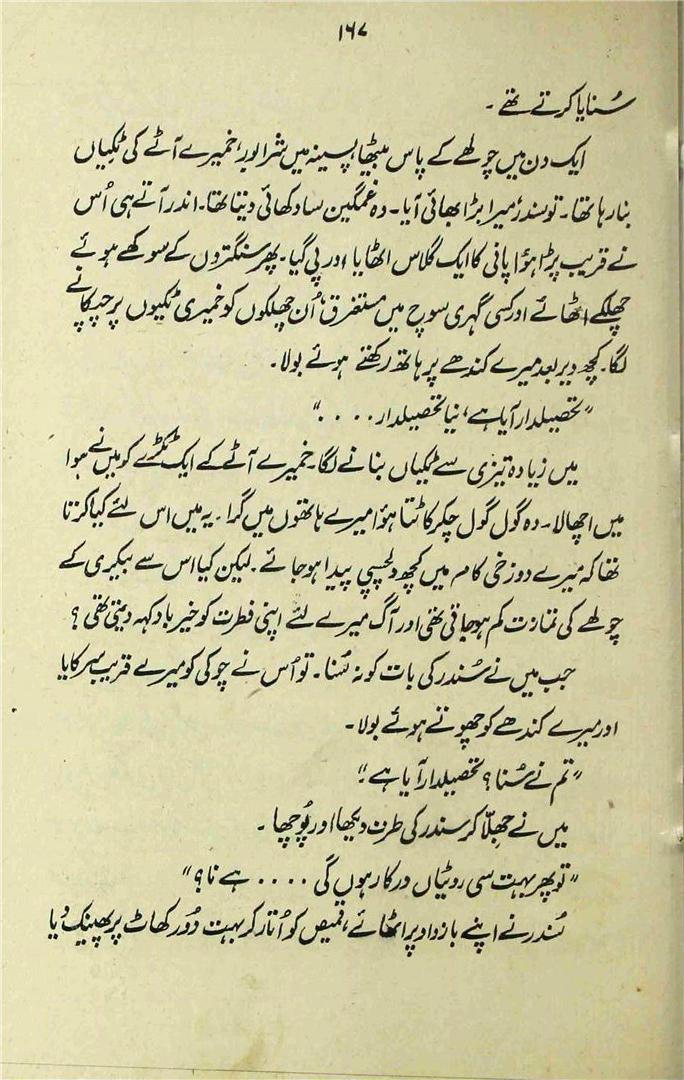 ۱۶۷
سُنایا کرتے تھے ۔
ایک دن میں چولھے کے پاس بیٹھا، پسینہ میں شرابور، خمیرے آٹے کی ٹکیاں
بنا رہا تھا۔ تو سندر، میرا بڑا بھائی آیا۔ وہ غمگین سا دکھائی دیتا تھا۔ اندر آتے ہی اُس
نے قریب پڑا ہؤا پانی کا ایک گلاس اٹھایا اور پی گیا۔ پھر سنگتروں کے سوکھے ہوئے
چھلکے اٹھائے اور کسی گہری سوچ میں مستغرق، اُن چھلکوں کو خمیری ٹکیوں پر چپکانے
لگا۔ کچھ دیر بعد میرے کندھے پر ہاتھ رکھتے ہوئے بولا۔
"تحصیلدار آیا ہے، نیا تحصیلدار . . . ."
میں زیادہ تیزی سے ٹکیاں بنانے لگا۔ خمیرے آٹے کے ایک ٹکڑے کو میں نے ہوا
میں اچھالا۔ وہ گول گول چکر کاٹتا ہؤا میرے ہاتھوں میں گرا۔ یہ میں اس لئے کیا کرتا
تھا کہ میرے دوزخی کام میں کچھ دلچسپی پیدا ہو جائے۔ لیکن کیا اس سے بیکری کے
چولھے کی تمازت کم ہو جاتی تھی اور آگ میرے لئے اپنی فطرت کو خیرباد کہہ دیتی تھی ؟
جب میں نے سُندر کی بات کو نہ سُنا۔ تو اُس نے چوکی کو میرے قریب سرکایا
اور میرے کندھے کو چھوتے ہوئے بولا۔
"تم نے سُنا؟ تحصیلدار آیا ہے۔"
میں نے جھلّا کر سندر کی طرف دیکھا اور پُوچھا ۔
"تو پھر بہت سی روٹیاں درکار ہوں گی . . . . ہے نا؟"
سُندر نے اپنے بازو اوپر اٹھائے، قمیص کو اُتار کر بہت دُور کھاٹ پر پھینک دیا